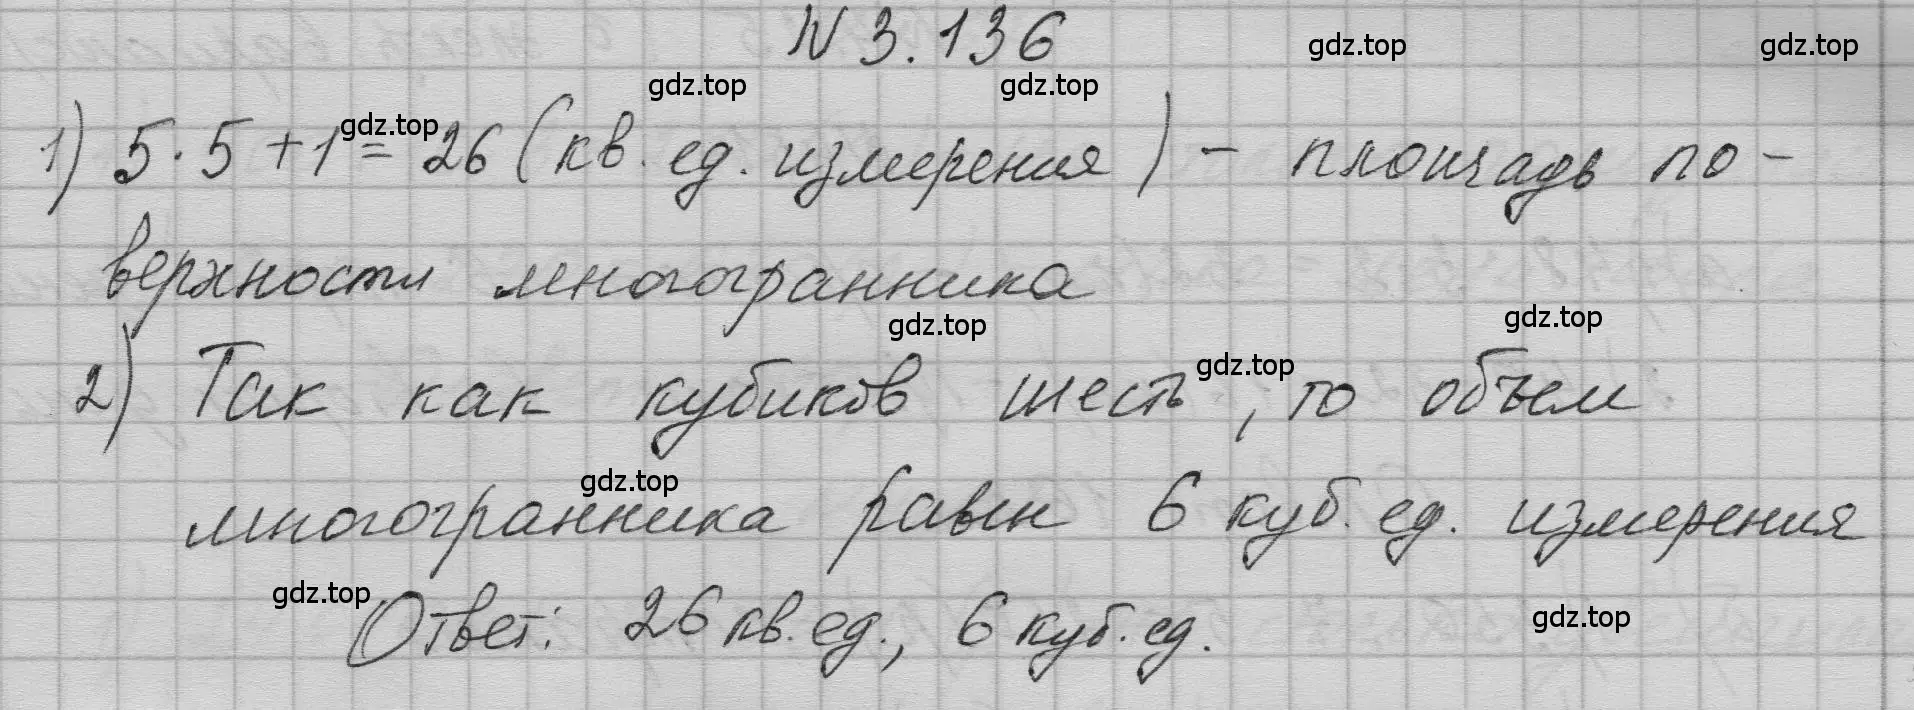 N 3.136
1) 5·5+1=26 (кв. ед. измерения) - площадь по-
верхности многогранника
2) Так как кубиков шесть, то объем
многогранника равен 6 куб. ед. измерения
Ответ: 26 кв. ед., 6 куб. ед.
gdz.top
gdz.top
gdz.top
gdz.top
gdz.top
gdz.top
gdz.top
gdz.top
gdz.top
gdz.top
gdz.top